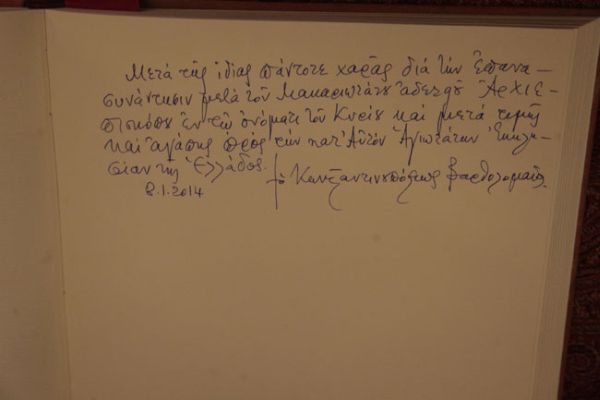 Μετά τῆς ἰδίας πάντοτε χαρᾶς διά τήν ἐπανα-
συνάντησιν μετά τοῦ Μακαριωτάτου ἀδελφοῦ Ἀρχιε-
πισκόπου ἐν τῷ ὀνόματι τοῦ Κυρίου καί μετά τιμῆς
καί ἀγάπης πρός τήν κατ' Αὐτόν Ἁγιωτάτην Ἐκκλη-
σίαν τῆς Ἑλλάδος.
8.1.2014
† ὁ Κωνσταντινουπόλεως Βαρθολομαῖος